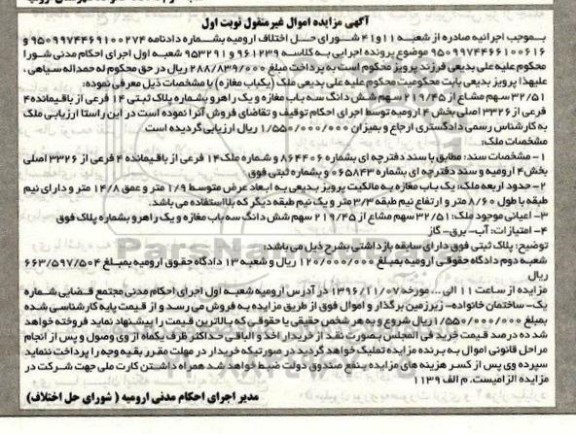 آگهی مزایده اموال غیرمنقول نوبت اول
بموجب اجرائیه صادره از شعبه 11و41 شورای حل اختلاف ارومیه بشماره دادنامه 9509974469100274 و
9509974466100616 موضوع پرونده اجرایی به کلاسه 961239 و 953291 شعبه اول اجرای احکام مدنی شورا
محکوم علیه علی بدیعی فرزند پرویز محکوم است به پرداخت مبلغ 288/839/000 ریال در حق محکوم له حمداله سیاهی ،
علیهذا پرویز بدیعی بابت محکومیت محکوم علیه علی بدیعی ملک (یکباب مغازه) با مشخصات ذیل معرفی نموده:
32/51 سهم مشاع از 219/45 سهم شش دانگ سه باب مغازه و یک راهرو بشماره پلاک ثبتی 14 فرعی از باقیمانده 4
فرعی از 3326 اصلی بخش 4 ارومیه توسط اجرای احکام توقیف و تقاضای فروش آنرا نموده است در این راستا ارزیابی ملک
به کارشناس رسمی دادگستری ارجاع و بمیزان 1/550/000/000 ریال ارزیابی گردیده است.
مشخصات ملک:
1- مشخصات سند: مطابق با سند دفترچه ای بشماره 864406 و شماره ملک 14 فرعی از باقیمانده 4 فرعی از 3326 اصلی
بخش 4 ارومیه و سند دفترچه ای بشماره 065843 و بشماره ثبتی فوق
2- حدود اربعه ملک: یک باب مغازه به مالکیت پرویز بدیعی به ابعاد عرض متوسط 1/9 متر و عمق 14/8 متر و دارای نیم
طبقه با طول 8/60 متر و ارتفاع نیم طبقه 3/3 متر و یک نیم طبقه دیگر که بلااستفاده می باشد.
3- اعیانی موجود ملک: 32/51 سهم مشاع از 219/45 سهم شش دانگ سه باب مغازه و یک راهرو بشماره پلاک فوق
4- امتیازات: آب- برق- گاز
توضیح: پلاک ثبتی فوق دارای سابقه بازداشتی بشرح ذیل می باشد:
شعبه دوم دادگاه حقوقی ارومیه بمبلغ 120/000/000 ریال و شعبه 13 دادگاه حقوق ارومیه بمبلغ 663/597/504
ریال
مزایده از ساعت 11 الی ... مورخه 1396/11/07 در آدرس ارومیه شعبه اول اجرای احکام مدنی مجتمع قضایی شماره
یک- ساختمان خانواده- زیرزمین برگذار و اموال فوق از طریق مزایده به فروش می رسد و از قیمت پایه کارشناسی شده
بمبلغ 1/550/000/000 ریال شروع و به هر شخص حقیقی یا حقوقی که بالاترین قیمت را پیشنهاد نماید فروخته خواهد
شد ده درصد قیمت خرید فی المجلس بصورت نقد از خریدار اخذ و الباقی حداکثر ظرف یکماه از وی وصول و پس از انجام
مراحل قانونی اموال به برنده مزایده تملیک خواهد گردید در صورتیکه خریدار در مهلت مقرر بقیه وجه را پرداخت ننماید
سپرده وی پس از کسر هزینه های مزایده بنفع صندوق دولت ضبط خواهد شد همراه داشتن کارت ملی جهت شرکت در
مزایده الزامیست. م الف 1139
مدیر اجرای احکام مدنی ارومیه ( شورای حل اختلاف)